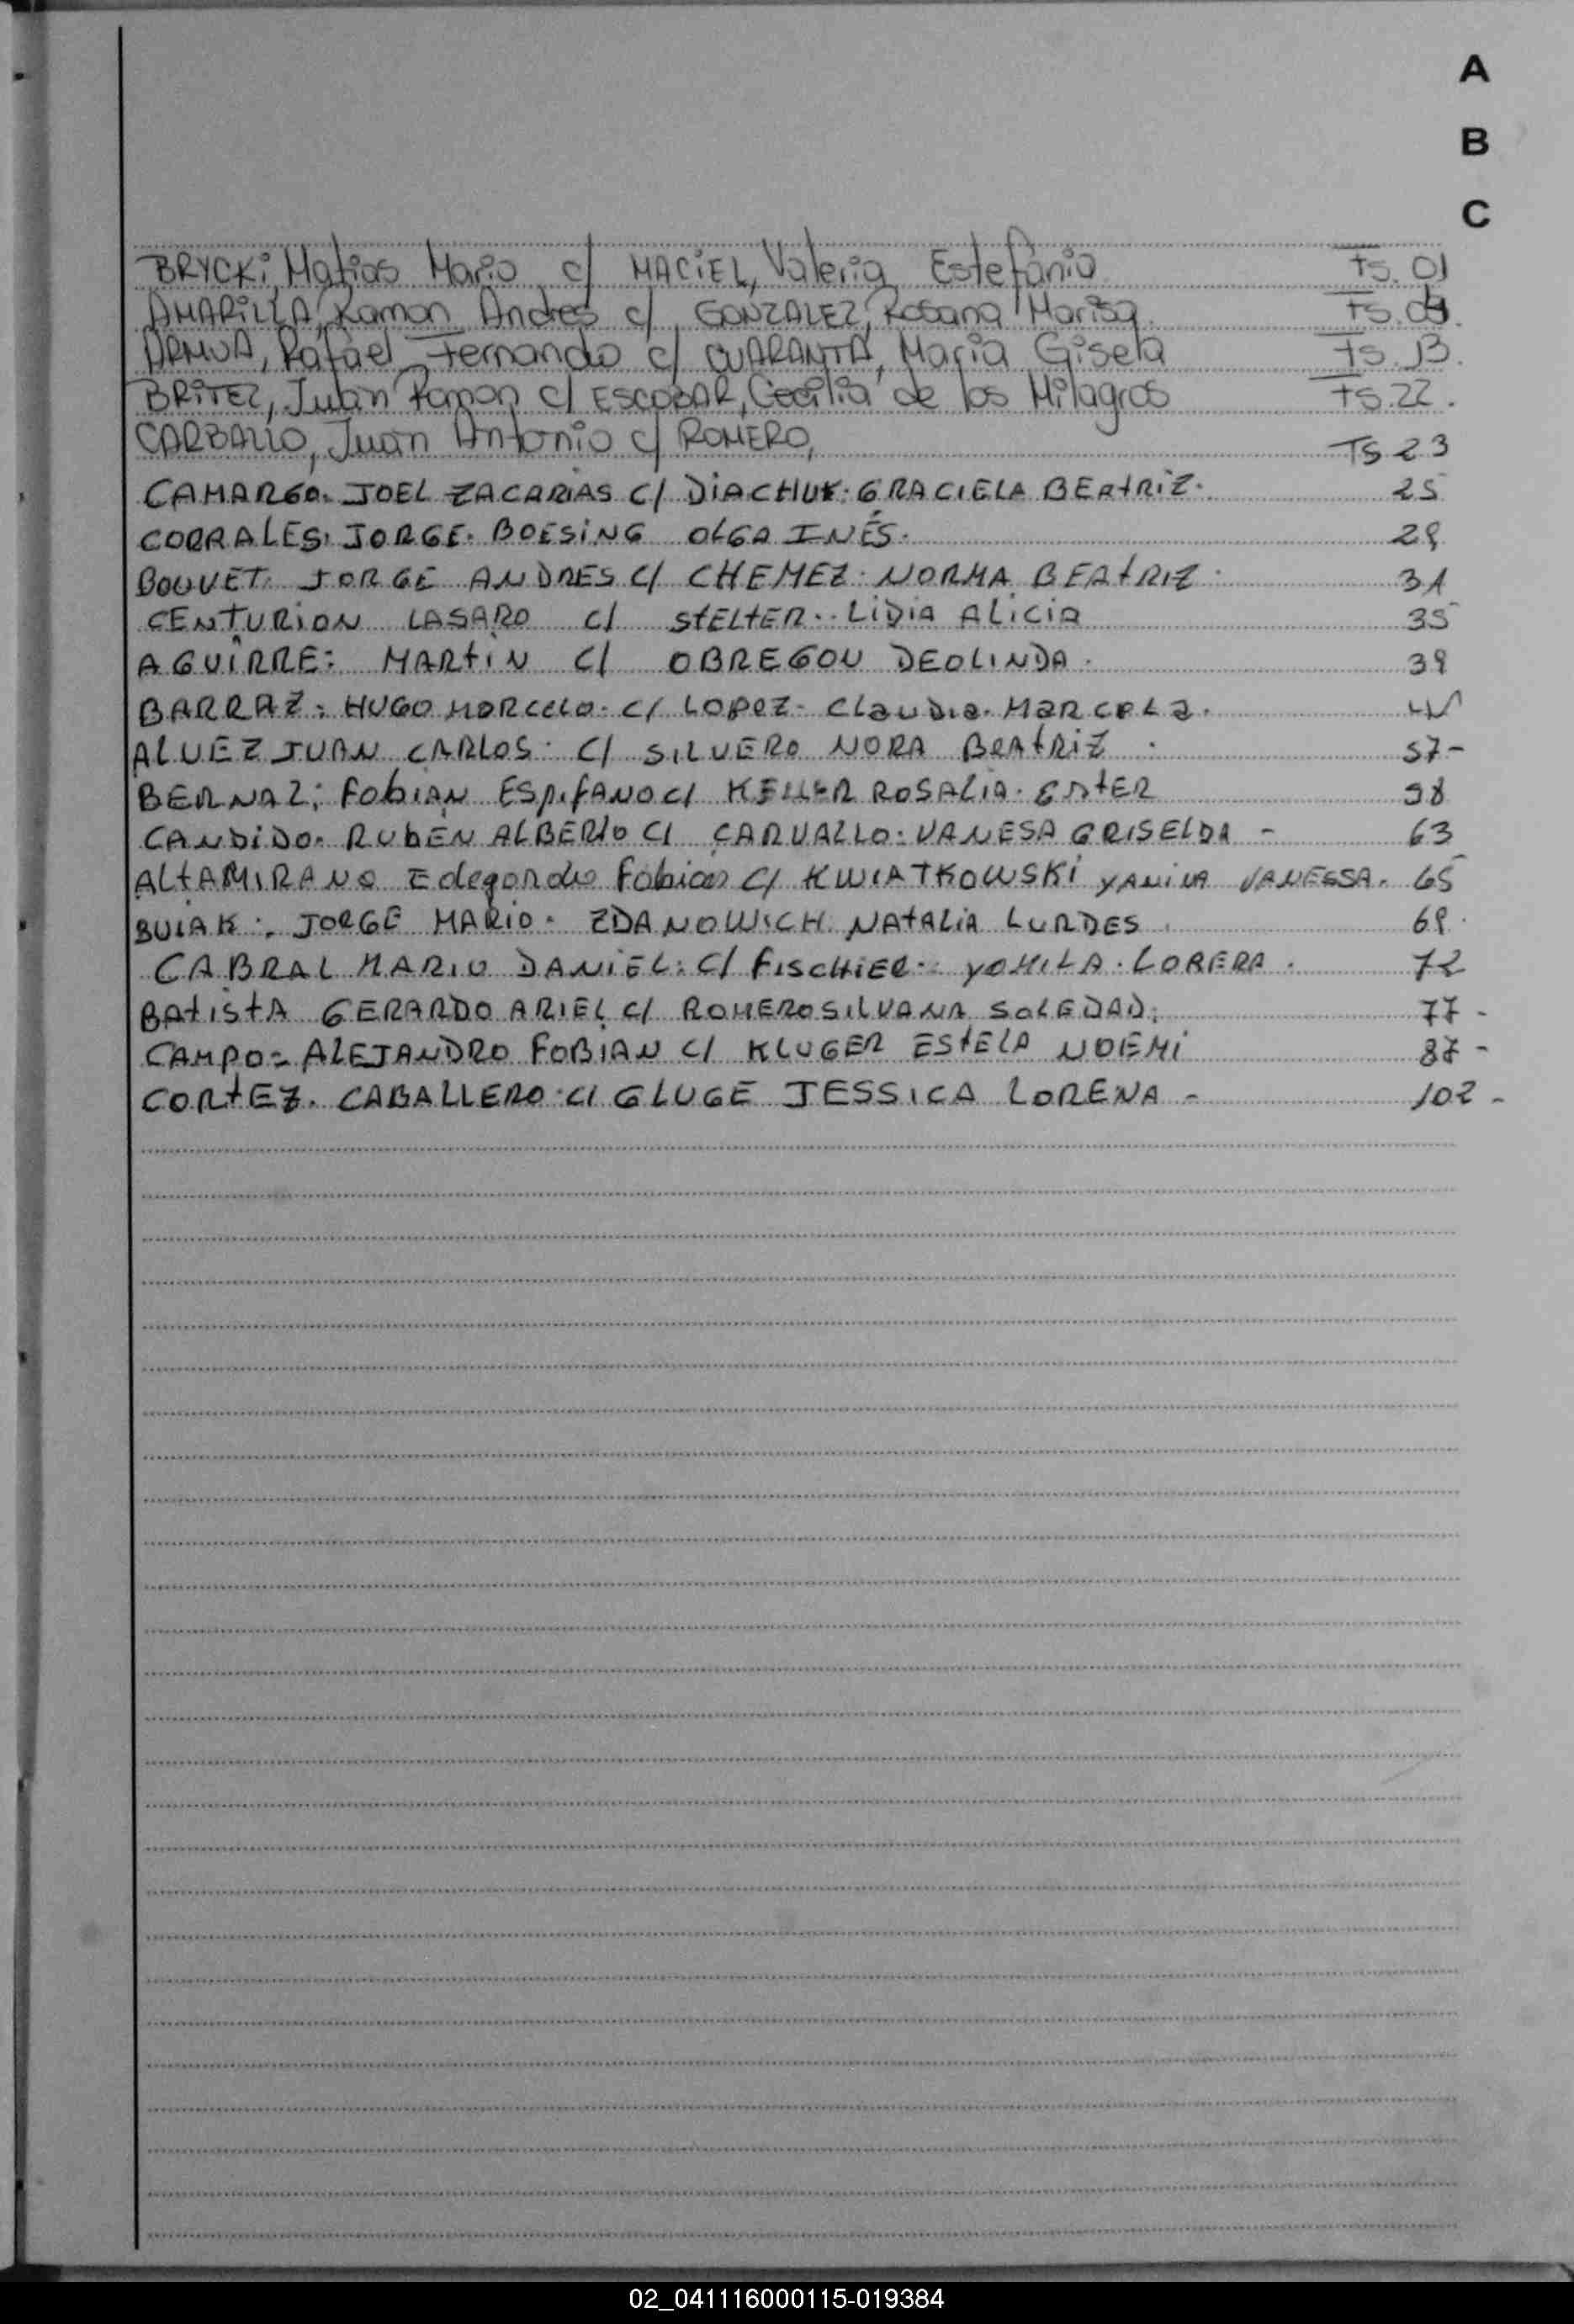 A
B
C
BRYCKi, Matias Mario c/ MACiEL, Valeria Estefania Fs. 01
AMARiLLA, Ramon Andres c/ GONZALEZ, Rosana Marisa. Fs.
ARMUA, Rafael Fernando c/ CUARANTA, Maria Gisela Fs. 13.
BRiTEZ, Julian Ramon c/ ESCOBAR, Cecilia de los Milagros Fs. 22.
CARBALLO, Juan Antonio c/ ROMERO, Fs 23
CAMARGO. JOEL ZACARIAS C/ DiACHUK. GRACIELA BEAtRiZ. 25
CORRALES. JORGE. BOESiNG OLGA INÉS. 29
BOUVET. JORGE ANDRES C/ CHEMEZ. NORMA BEAtRIZ. 31
CENTURION LASARO C/ StELtER.. LiDia ALiCia 35
AGUiRRE: MARtiN C/ OBREGON DEOLINDA. 39
BARRAZ. HUGO MARCELO. C/ LOPEZ- CLauDia. MaRCELa.
ALVEZ JUAN CARLOS. C/ SILVERO NORA BEAtRiZ. 57-
BERNAL; FabiAN ESpifANO C/ KELLER ROSALiA. EStER 58
CANDiDO. RUbEN ALBERtO C/ CARVALLO. VANESA GRISELDA - 63
ALtAMiRANO Edegardo Fabian C/ KWIATKOWSKi YANiNA VANESSA. 65
BUiAK. JORGE MARiO. ZDANOWiCH NAtALiA LURDES. 69.
CABRAL MARiO DANiEL. C/ FiSCHiER. YOMiLA. LORERA. 72
BAtiStA GERARDO ARiEL C/ ROMERO SILVANA SOLEDAD. 77-
CAMPO= ALEJANDRO FABiAN C/ KLUGER EStELA NOEMi 87-
CORtEZ. CABALLERO. C/ GLUGE JESSICA LORENA - 102-
02_041116000115-019384